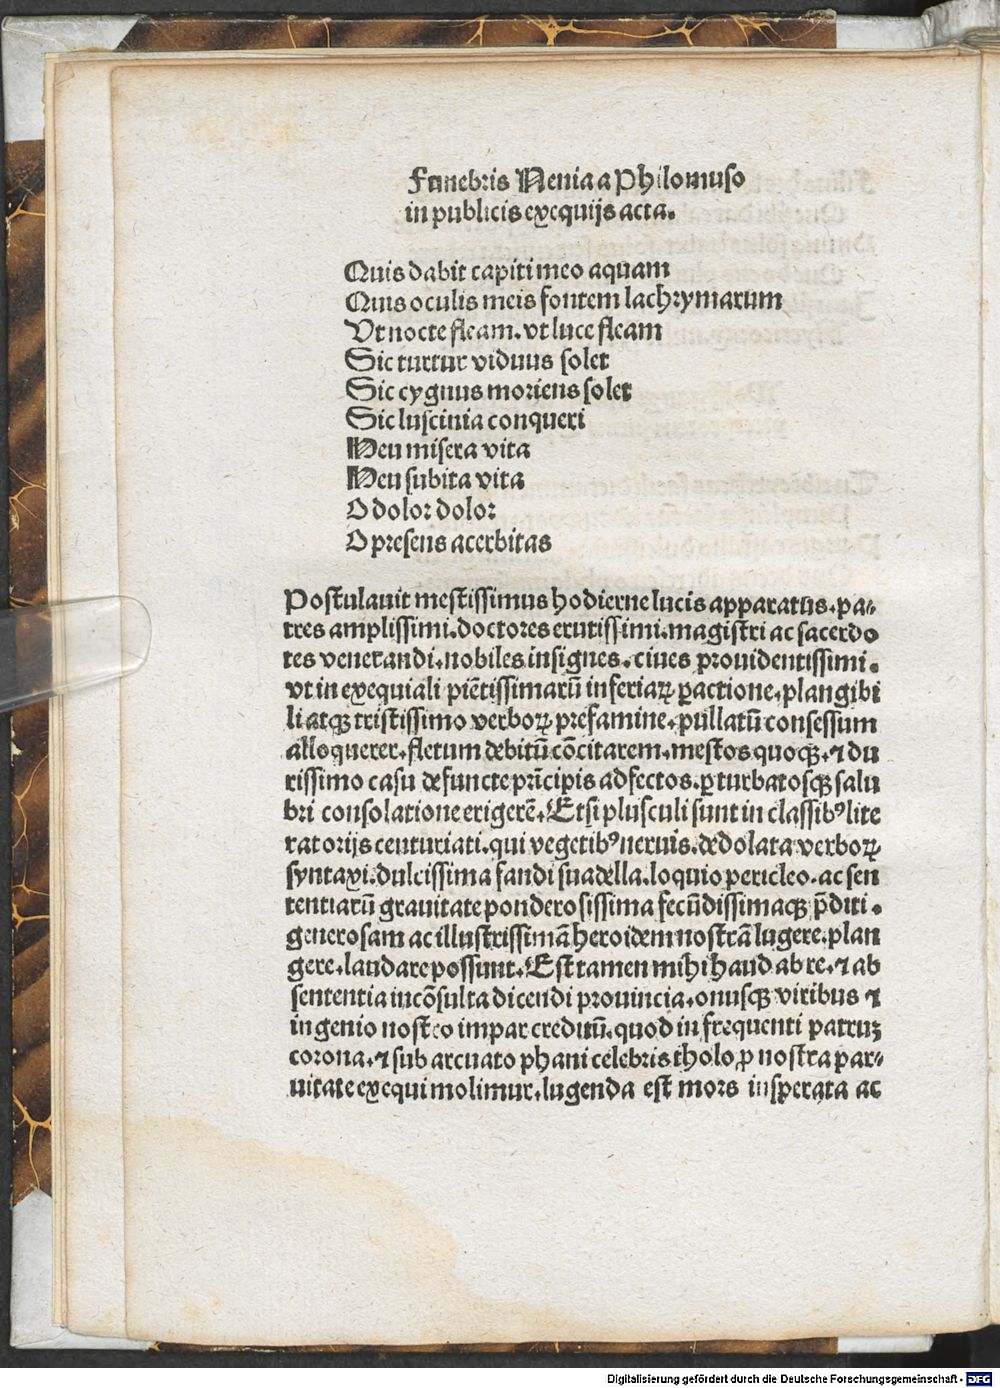 Funebris Nenia a Philomuso
in publicis exequijs acta.
Quis dabit capiti meo aquam
Quis oculis meis fontem lachrymarum
Vt nocte fleam. vt luce fleam
Sic turtur viduus solet
Sic cygnus moriens solet
Sic luscinia conqueri
Heu misera vita
Heu subita vita
O dolor dolor
O presens acerbitas
Postulauit mestissimus hodierne lucis apparatus. pa⸗
tres amplissimi. doctores erutissimi. magistri ac sacerdo
tes venerandi. nobiles insignes. ciues prouidentissimi.
vt in exequiali piẽtissimarũ inferiaꝝ ꝑactione. plangibi
li atqꝫ tristissimo verboꝝ prefamine. pullatũ consessum
allsquerer. fletum debitũ cõcitarem. mestos quoqꝫ. ⁊ du
rissimo casu defuncte prĩcipis adfectos. ꝑturbatosqꝫ salu
bri consolatione erigerẽ. Etsi plusculi sunt in classibꝰ lite
ratorijs centuriati. qui vegetibꝰ neruis. dedolata verboꝝ
syntaxi. dulcissima fandi suadella. loquio pericleo. ac sen
tentiarũ grauitate ponderosissima fecũdissimaqꝫ p̃diti.
generosam ac illustrissimã heroidem nostrã lugere. plan
gere. laudare possunt. Est tamen mihi haud ab re. ⁊ ab
sententia incõsulta dicendi prouincia. onusqꝫ viribus ⁊
ingenio nostro impar creditũ. quod in frequenti patruꝫ
corona. ⁊ sub arcuato phani celebris tholo. ꝓ nostra par⸗
uitate exequi molimur. lugenda est mors insperata ac
Digitalisierung gefördert durch die Deutsche Forschungsgemeinschaft - DFG